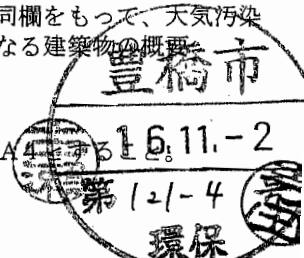 同欄をもって、大気汚染
なる建築物の概要
豊橋市
A4とすること。
16.11.-2
第121-4
環保